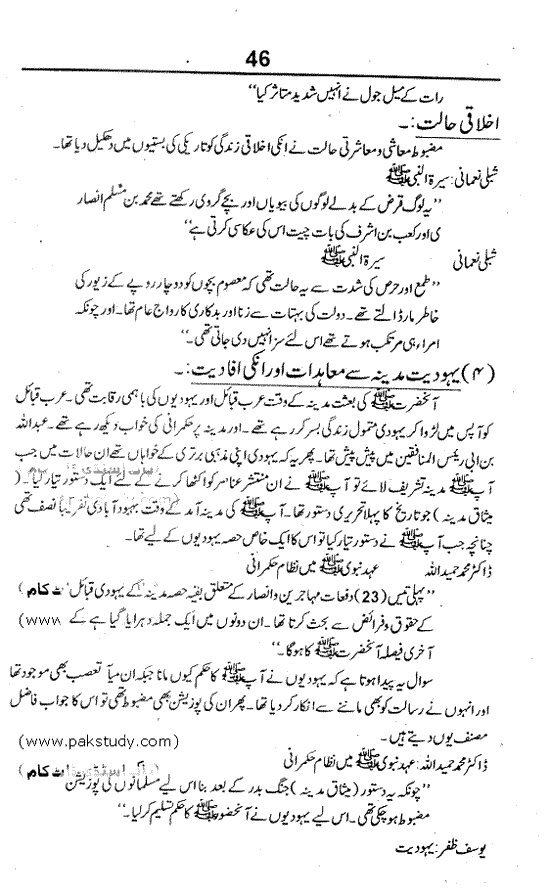 46
رات کے میل جول نے انہیں شدید متاثر کیا‘‘
اخلاقی حالت:۔
مضبوط معاشی و معاشرتی حالت نے انکی اخلاقی زندگی کو تاریکی کی بستیوں میں دھکیل دیا تھا۔
شبلی نعمانی: سیرۃ النبی ﷺ
’’یہ لوگ قرض کے بدلے لوگوں کی بیویاں اور بچے گروی رکھتے تھے محمد بن مسلم انصار
ی اور کعب بن اشرف کی بات چیت اس کی عکاسی کرتی ہے‘‘
شبلی نعمانی سیرۃ النبی ﷺ
’’طمع اور حرص کی شدت سے یہ حالت تھی کہ معصوم بچوں کو دو چار روپے کے زیور کی
خاطر مار ڈالتے تھے۔ دولت کی بہتات سے زنا اور بدکاری کا رواج عام تھا۔ اور چونکہ
امراء ہی مرتکب ہوتے تھے اس لئے سزا نہیں دی جاتی تھی۔‘‘
(۴) یہودیت مدینہ سے معاہدات اور انکی افادیت:۔
آنحضرت ﷺ کی بعثت مدینہ کے وقت عرب قبائل اور یہودیوں کی باہمی رقابت تھی۔ عرب قبائل
کو آپس میں لڑوا کر یہودی متمول زندگی بسر کر رہے تھے۔ اور مدینہ پر حکمرانی کی خواب دیکھ رہے تھے۔ عبداللہ
بن ابی رئیس المنافقین میں پیش پیش تھا۔ پھر یہ کہ یہودی اپنی مذہبی برتری کے خواہاں تھے ان حالات میں جب
آپ ﷺ مدینہ تشریف لائے تو آپ ﷺ نے ان منتشر عناصر کو اکٹھا کرنے کے لئے ایک دستور تیار کیا۔ (
میثاق مدینہ) جو تاریخ کا پہلا تحریری دستور تھا۔ آپ ﷺ کی مدینہ آمد کے وقت یہود آبادی تقریباً نصف تھی
چنانچہ جب آپ ﷺ نے دستور تیار کیا تو اس کا ایک خاص حصہ یہودیوں کے لیے تھا۔
ڈاکٹر محمد حمید اللہ عہد نبوی ﷺ میں نظام حکمرانی
’’پہلی تیس (23) دفعات مہاجرین و انصار کے متعلق بقیہ حصہ مدینہ کے یہودی قبائل ٹ کام)
کے حقوق و فرائض سے بحث کرتا تھا۔ ان دونوں میں ایک جملہ دہرایا گیا ہے کے (www
آخری فیصلہ آنحضرت ﷺ کا ہوگا۔‘‘
سوال یہ پیدا ہوتا ہے کہ یہودیوں نے آپ ﷺ کا حکم کیوں مانا جبکہ ان میں تعصب بھی موجود تھا
اور انہوں نے رسالت کو بھی ماننے سے انکار کر دیا تھا۔ پھر ان کی پوزیشن بھی مضبوط تھی تو اس کا جواب فاضل
مصنف یوں دیتے ہیں۔ (www.pakstudy.com)
ڈاکٹر محمد حمید اللہ: عہد نبوی ﷺ میں نظام حکمرانی پاک اسٹڈی ڈاٹ کام)
’’چونکہ یہ دستور (میثاق مدینہ) جنگ بدر کے بعد بنا اس لیے مسلمانوں کی پوزیشن
مضبوط ہو چکی تھی۔ اس لیے یہودیوں نے آنحضور ﷺ کا حکم تسلیم کر لیا۔‘‘
یوسف ظفر: یہودیت